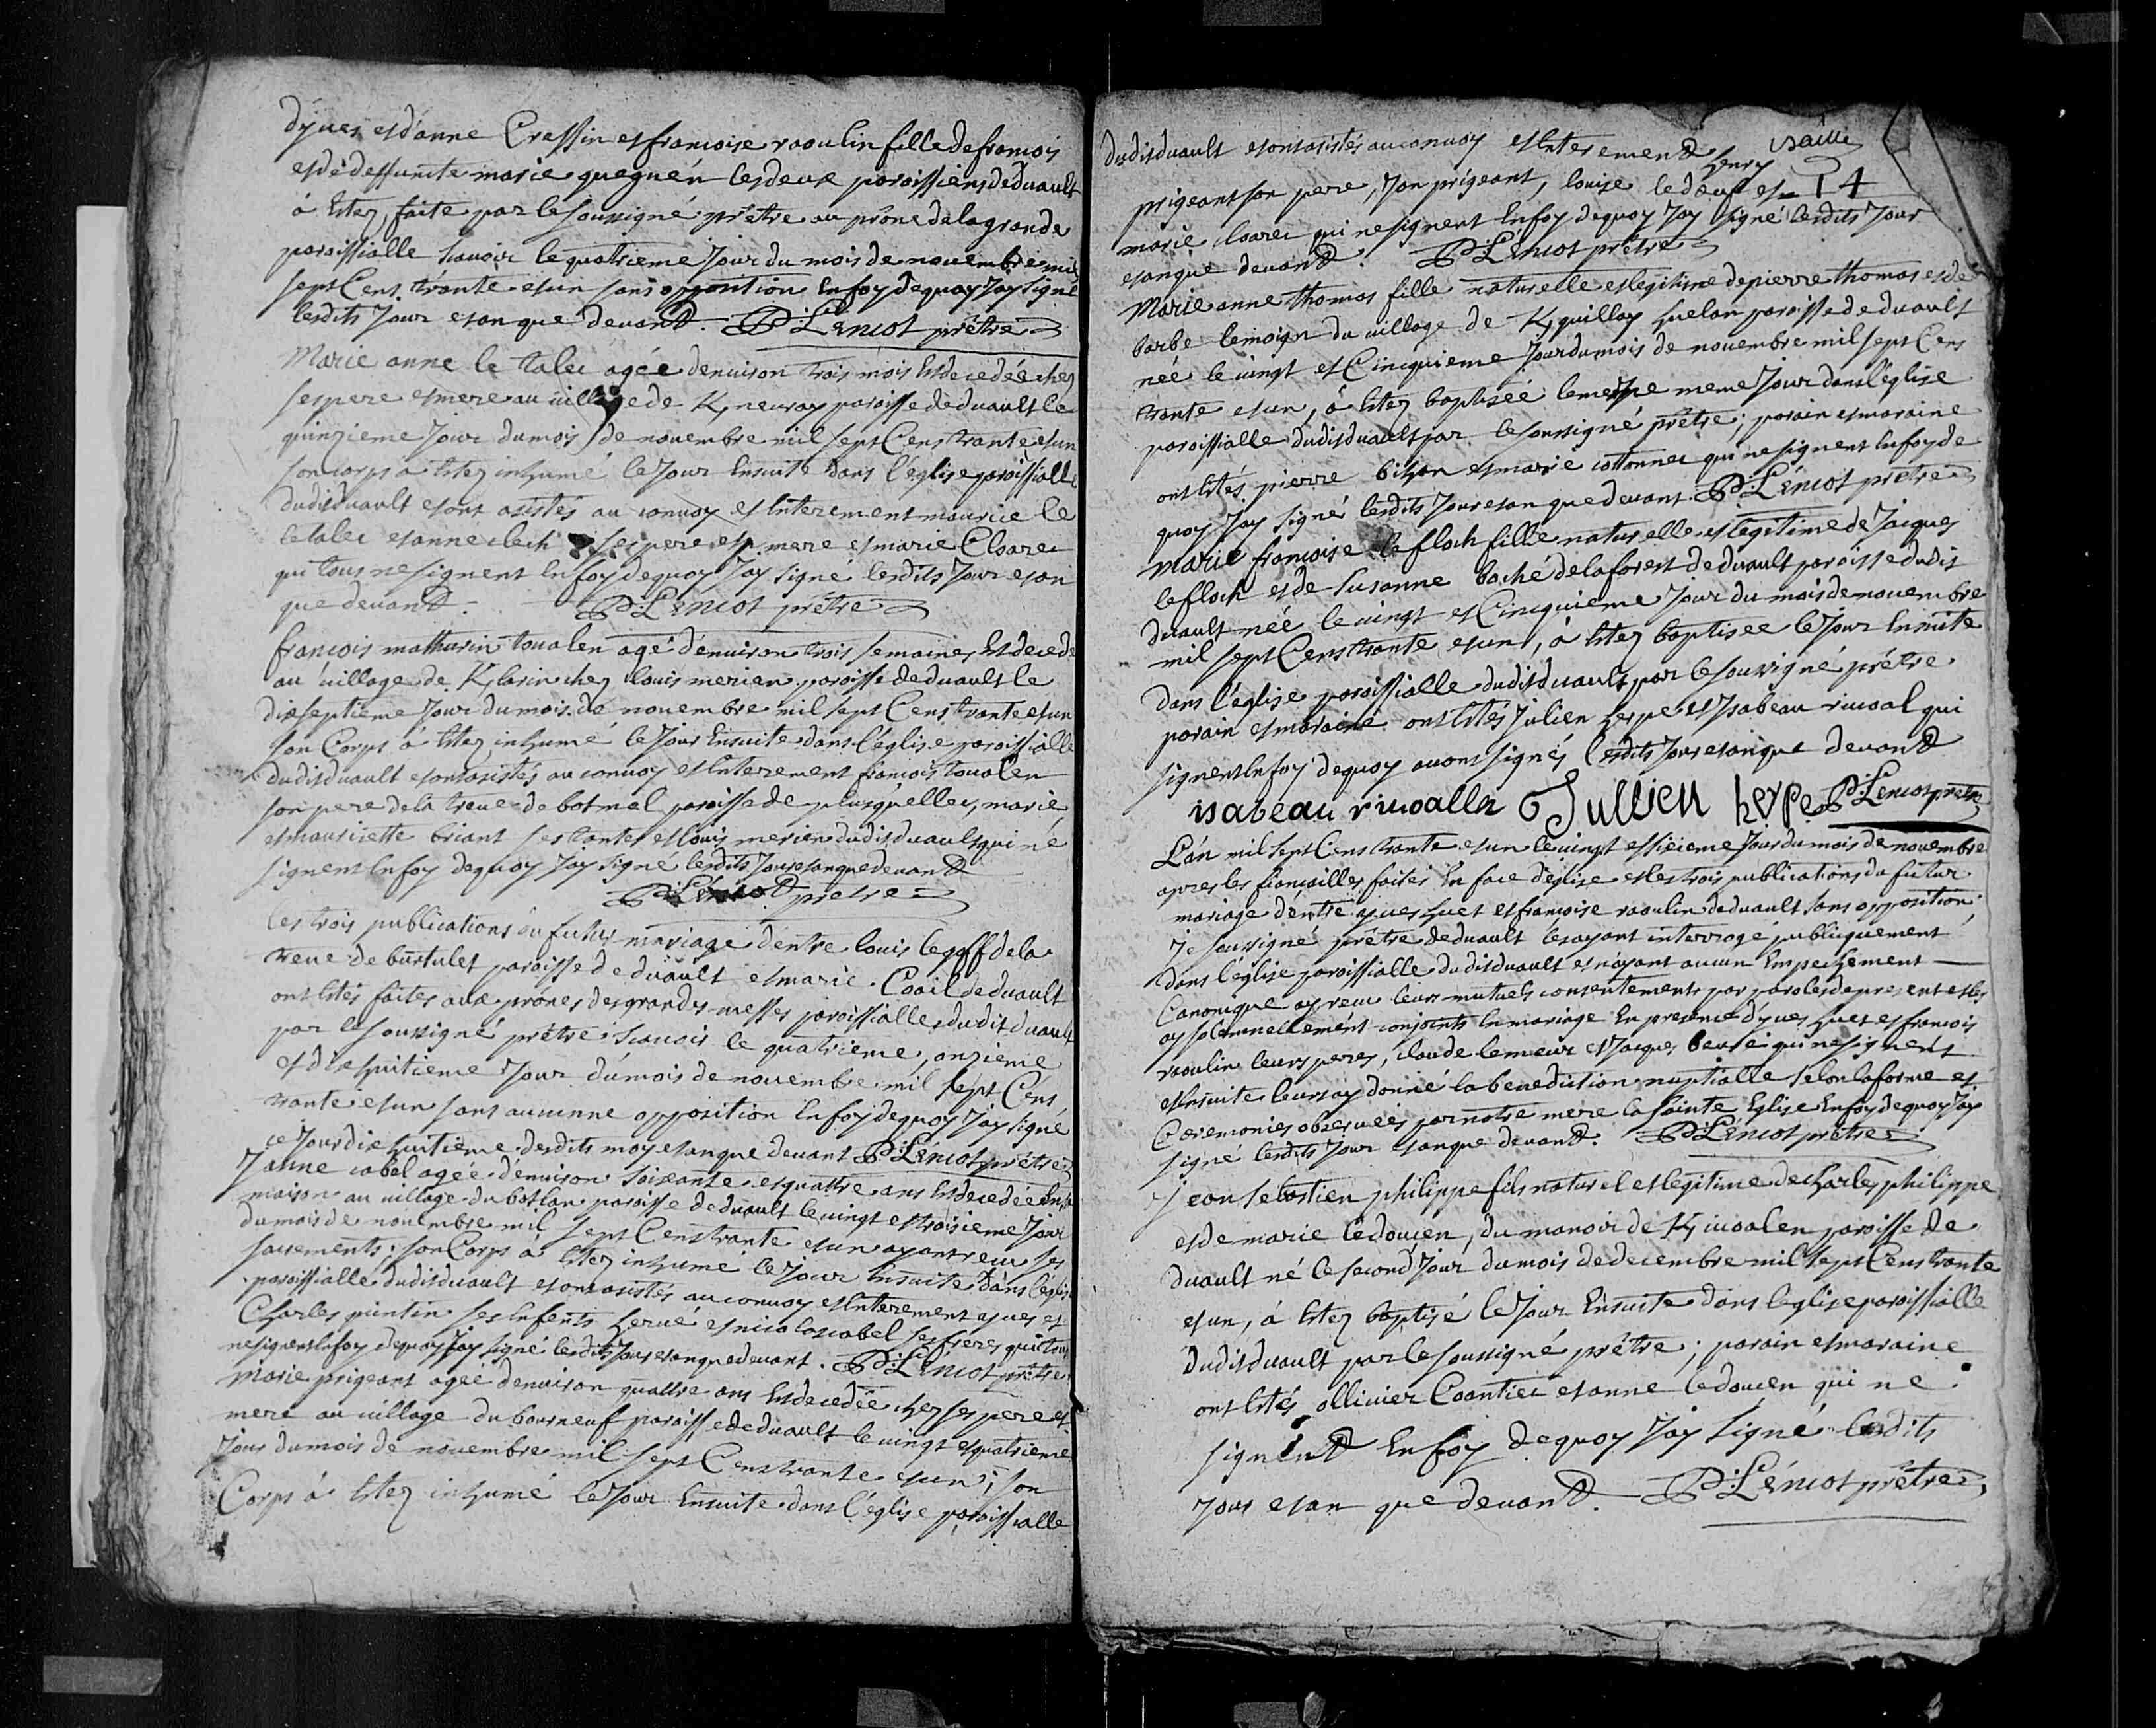 dyves et d'anne Cressin et francoise raoulin fille de francois
et de deffuncte marie queguén les deux paroissiens de duault
à Estez faite par le soussigné prêtre au prône de la grande
paroissialle scavoir le quatrieme Jour du mois de novembre mil
sept Cens trante et un sans opposition En foy de quoy Jay signé
lesdits Jour et an que devant. P: Lénicot prêtre
Marie anne le talec agée denviron trois mois Est decedée chez
ses pere et mere au village de K/neuray paroisse de duault le
quinzieme Jour du mois de novembre mil sept Cens trante et un
son corps a Estez inhumé le Jour Ensuite dans l'église paroissialle
dudit duault et ont asistés au convoy et Enterement maurice le
le talec et anne lech ses pere et mere et marie Cloarec
qui tous ne signent En foy de quoy Jay signé lesdits Jour et an
que devant. P: Lénicot prêtre
francois mathurin toualen agé d'environ trois semaines Est decedé
au village de K/larin chez louis merien paroisse de duault le
dixseptieme Jour du mois de novembre mil sept Cens trante et un
son Corps à Estez inhumé le Jour Ensuite dans l'église paroissialle
dudit duault et ont asistés au convoy et Enterement francois toualen
son pere de la treve de botmel paroisse de plusquellec, marie
et mauricette briant ses tantes et louis merien dudit duault qui ne
signent En foy de quoy Jay signé lesdits Jour et an que devant
P: Lénicot prêtre
les trois publications du futur mariage d'entre louis le goff de la
treve de burtulet paroisse de duault et marie Coail de duault
ont Estés faites aux prônes des grandes messes paroissialles dudit duault
par le soussigné prêtre scavoir le quatrieme, onzieme
et dixhuitieme Jour du mois de novembre mil sept Cens
trante et un sans aucunne opposition En foy de quoy Jay signé
ce Jour dixhuitieme desdits moy et an que devant P: Lénicot prêtre
Janne cabel agée d'environ soixante et quattre ans Est decedée En sa
maison au village du botlan paroisse de duault le vingt et troisieme Jour
du mois de novembre mil sept Cens trante et un ayant receu ses
sacrements; son Corps à Estez inhumé le Jour Ensuite dans l'église
paroissialle dudit duault et ont asistés au convoy et Enterement yves et
Charles quintin ses Enfents hervé et nicolas cabel ses freres qui tous
ne signent En foy de quoy Jay signé lesdits Jour et an que devant. P: Lénicot prêtre
marie prigeant agée denviron quattre ans Est decedée chez ses pere et
mere au village du bourneuf paroisse de duault le vingt et quatrieme
Jour du mois de novembre mil sept Cens trante et un; son
Corps à Estez inhumé le Jour Ensuite dans l'église paroissialle
14
dudit duault et ont asistés au convoy et Enterement henry
prigeant son pere, Jan prigeant, louise le dœuf et
marie cloarec qui ne signent En foy de quoy Jay signé lesdits Jour
et an que devant. P: Lénicot prêtre
Marie anne thomas fille naturelle et legitime de pierre thomas et de
barbe lemoign du village de K/quillay huelan paroisse de duault
née le vingt et Cincquieme Jour du mois de novembre mil sept Cens
trante et un, à Estez baptisée le meme Jour dans l'église
paroissialle dudit duault par le soussigné prêtre; parain et maraine
ont Estés pierre bihan et marie cottonnec qui ne signent En foy de
quoy Jay signé lesdits Jour et an que devant. P: Lénicot prêtre
Marie francoise le floch fille naturelle et legitime de Jacques
le floch et de Susanne baché de la forest de duault paroisse dudit
duault née le vingt et Cincquieme Jour du mois de novembre
mil sept Cens trante et un, à Estez baptisee le Jour Ensuite
dans l'église paroissialle dudit duault par le soussigné prêtre
parain et maraine ont Estés Julien herpe et Isabeau rivoal qui
signent En foy de quoy avons signés lesdits Jour et an que devant
isabeau rivoallan Jullien herpe P: Lénicot prêtre
L'an mil sept Cens trante et un le vingt et sixieme Jour du mois de novembre
apres les fiancailles faites En face d'église et les trois publications du futur
mariage d'entre yves huet et francoise raoulin de duault sans opposition,
je soussigné prêtre de duault les ayant interrogé publiquement
dans l'église paroissialle dudit duault et n'ayant aucun Empechement
Canonique ay receu leurs mutuels consentements par paroles de present et les
ay solemnellemént conjoints En mariage En presence d'yves huet et francois
raoulin leurs peres, claude lemeur et Jacques beuzé qui ne signent
et Ensuite leurs ay donné la benediction nuptialle selon la forme et
Cæremonies observées par notre mere la sainte Eglise En foy de quoy Jay
signé lesdits Jour et an que devant. P: Lénicot prêtre
jean sebastien philippe fils naturel et legitime de charles philippe
et de marie le doucen, du manoir de K/ivoalen paroisse de
duault né le second Jour du mois de decembre mil sept Cens trante
et un, à Estez baptisé le Jour Ensuite dans l'eglise paroissialle
dudit duault par le soussigné prêtre; parain et maraine
ont Estés ollivier Coantiec et anne le doucen qui ne
signent En foy de quoy Jay signé lesdits
Jour et an que devant. P: Lénicot prêtre